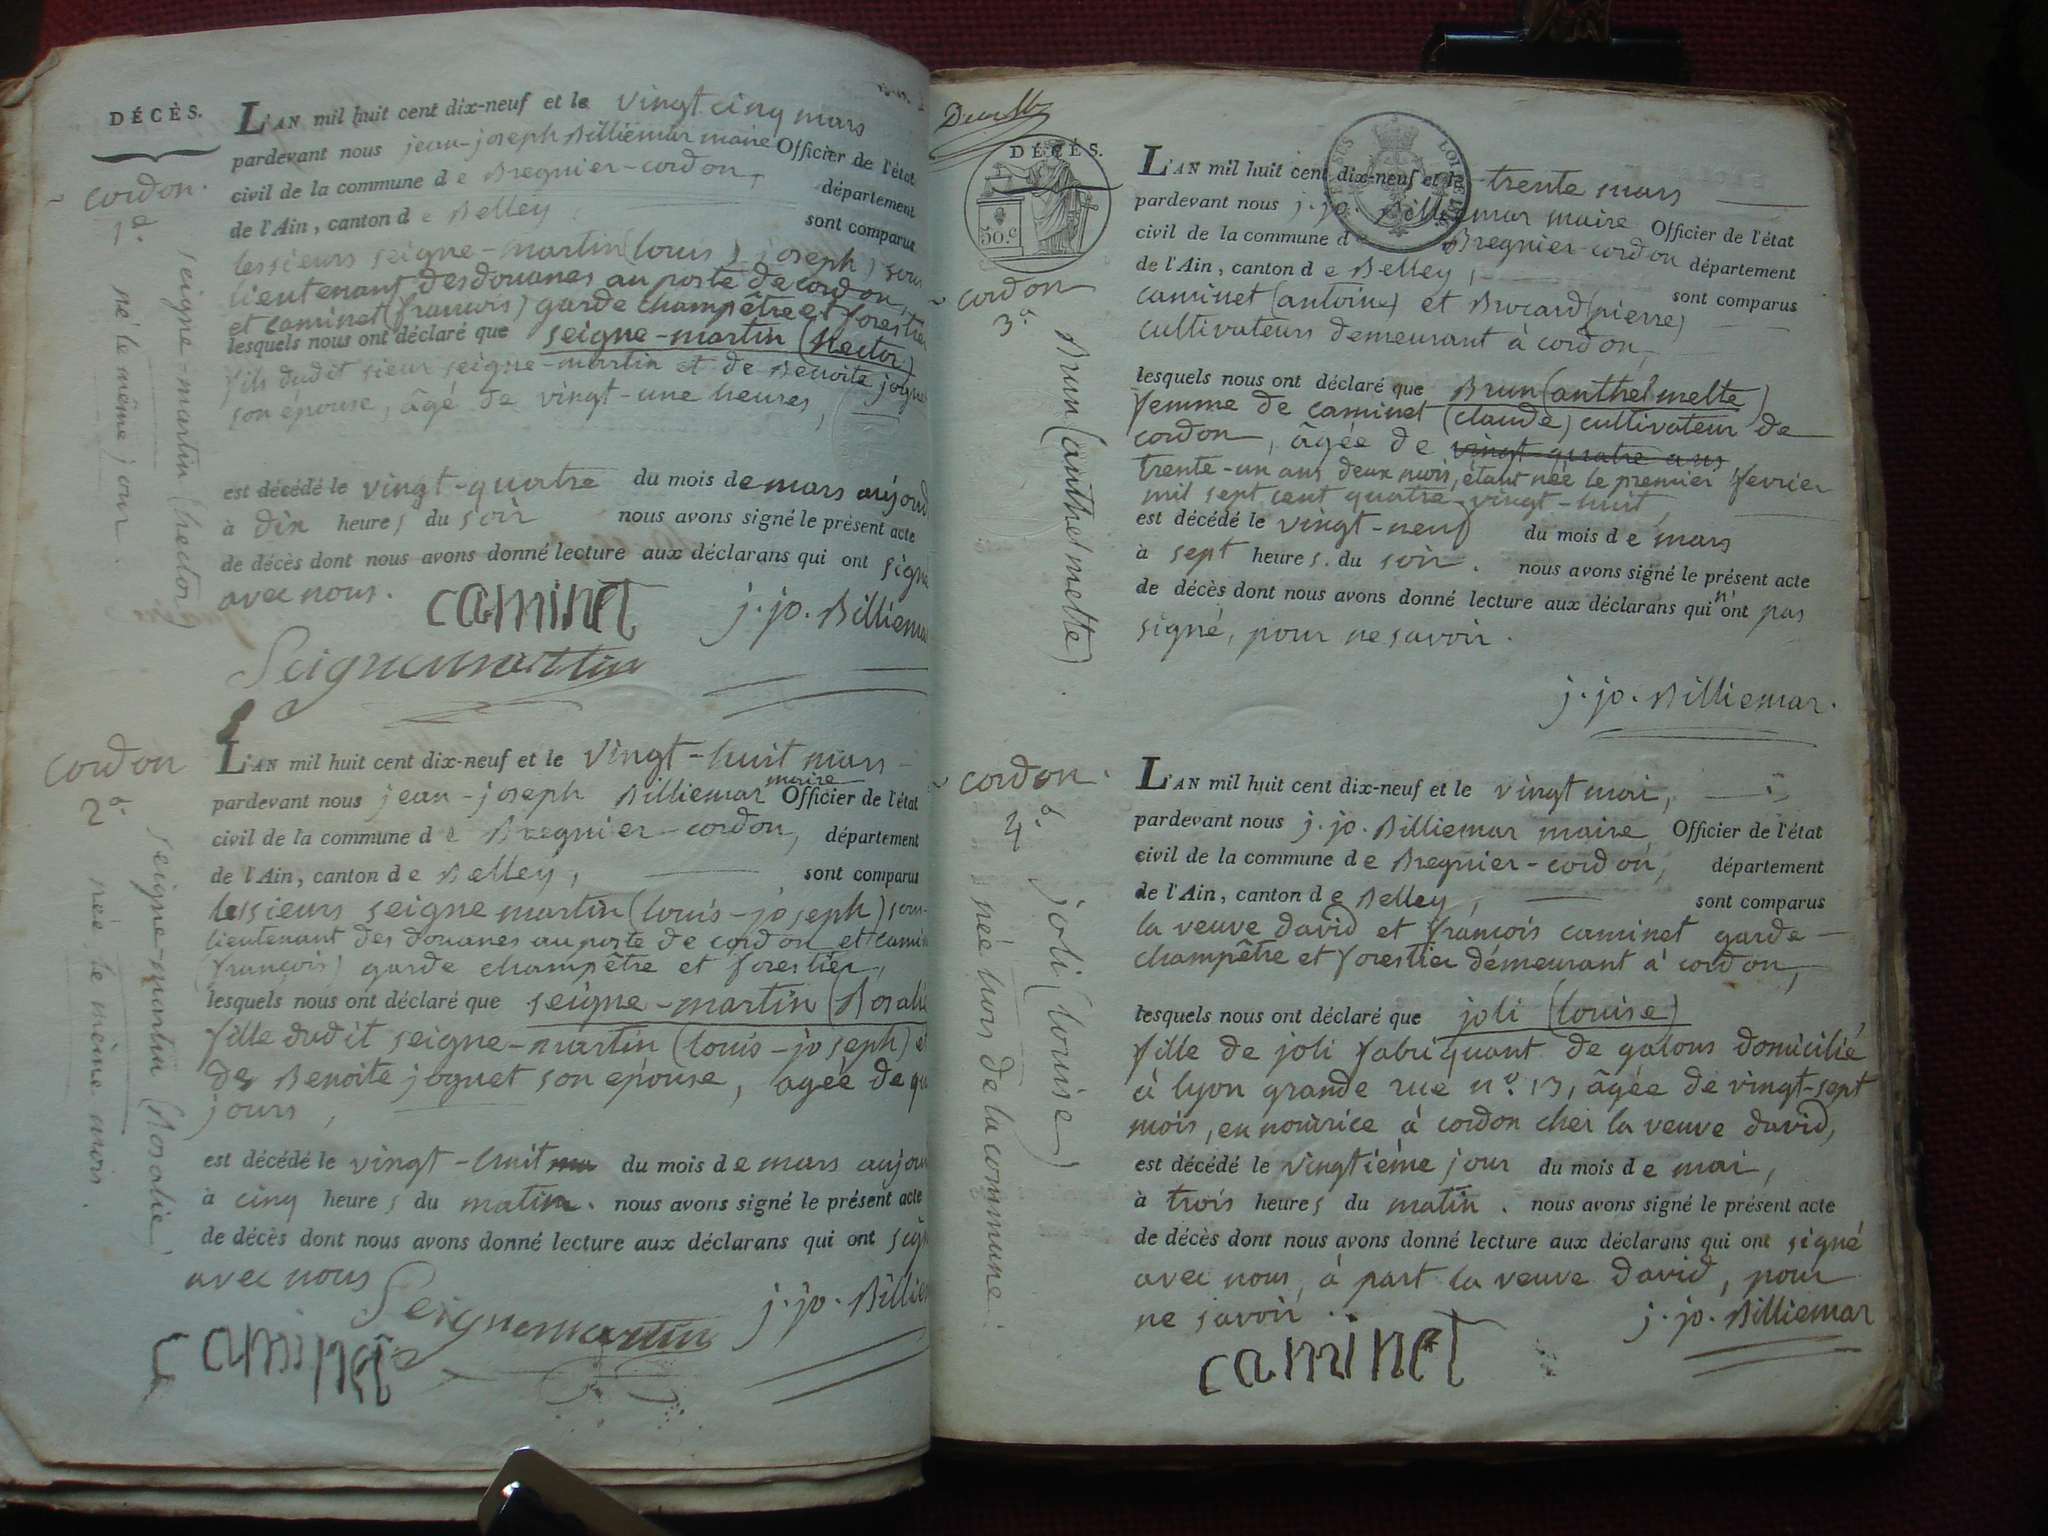 DÉCÈS.
L'AN mil huit cent dix-neuf et le vingt cinq mars
pardevant nous jean-joseph Billiemar maire Officier de l'état
civil de la commune de Bregnier-cordon, département
de l'Ain, canton de Belley, sont comparus
les sieurs seigne-martin (louis joseph) sous
lieutenant des douanes au poste de cordon,
et caminet (francois) garde champêtre et forestier
lesquels nous ont déclaré que seigne-martin (hector)
fils dudit sieur seigne-martin et de Benoite joguet
son épouse, âgé de vingt-une heures,
est décédé le vingt-quatre du mois de mars aujourd
à dix heures du soir nous avons signé le présent acte
de décès dont nous avons donné lecture aux déclarans qui ont signé
avec nous.
caminet
j. jo. Billiemar
Seignemartin
cordon.
1d.
seigne-martin (hector)
né le même jour.
cordon
2d.
seigne-martin (Rosalie)
née le même mois.
L'AN mil huit cent dix-neuf et le vingt-huit mars
pardevant nous jean-joseph Billiemar maire Officier de l'état
civil de la commune de Bregnier-cordon, département
de l'Ain, canton de Belley, sont comparus
les sieurs seigne martin (louis-joseph) sous-
lieutenant des douanes au poste de cordon et camin
(françois) garde champêtre et forestier,
lesquels nous ont déclaré que seigne-martin (Rosalie
fille dudit seigne-martin (louis-joseph) et
de Benoite joguet son epouse, agée de qu
jours,
est décédé le vingt-huit du mois de mars aujour
à cinq heures du matin. nous avons signé le présent acte
de décès dont nous avons donné lecture aux déclarans qui ont sign
avec nous
Seignemartin
j. jo. Billiem
caminet
DÉCÈS.
50.c
cordon
3d.
Brun (anthelmette).
L'AN mil huit cent dix-neuf et le trente mars
pardevant nous j. jo. Billiemar maire Officier de l'état
civil de la commune de Bregnier-cordon département
de l'Ain, canton de Belley, sont comparus
caminet (antoine) et Brocard (pierre)
cultivateurs demeurant à cordon,
lesquels nous ont déclaré que Brun (anthelmette)
femme de caminet (claude) cultivateur de
cordon, âgée de vingt-quatre ans
trente-un ans deux mois, étant née le premier fevrier
mil sept cent quatre-vingt-huit,
est décédé le vingt-neuf du mois de mars
à sept heures du soir. nous avons signé le présent acte
de décès dont nous avons donné lecture aux déclarans qui n'ont pas
signé, pour ne savoir.
j. jo. Billiemar.
cordon.
4d.
joli (louise)
née hors de la commune.
L'AN mil huit cent dix-neuf et le vingt mai,
pardevant nous j. jo. Billiemar maire Officier de l'état
civil de la commune de Bregnier-cordon, département
de l'Ain, canton de Belley, sont comparus
la veuve david et françois caminet garde
champêtre et forestier demeurant à cordon,
lesquels nous ont déclaré que joli (louise)
fille de joli fabriquant de galons domicilié
à lyon grande rue n.o 13, âgée de vingt-sept
mois, en nourrice à cordon chez la veuve david,
est décédé le vingtième jour du mois de mai,
à trois heures du matin. nous avons signé le présent acte
de décès dont nous avons donné lecture aux déclarans qui ont signé
avec nous, à part la veuve david, pour
ne savoir.
j. jo. Billiemar
caminet